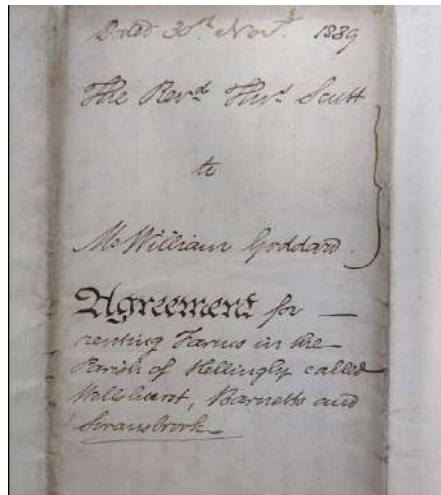 Dated 30th Novr. 1839
The Revd. Thos. Scutt
to
Mr William Goddard.
Agreement for
renting Farms in the
Parish of Hellingly called
Wellshurst, Barnetts and
Swansbrook